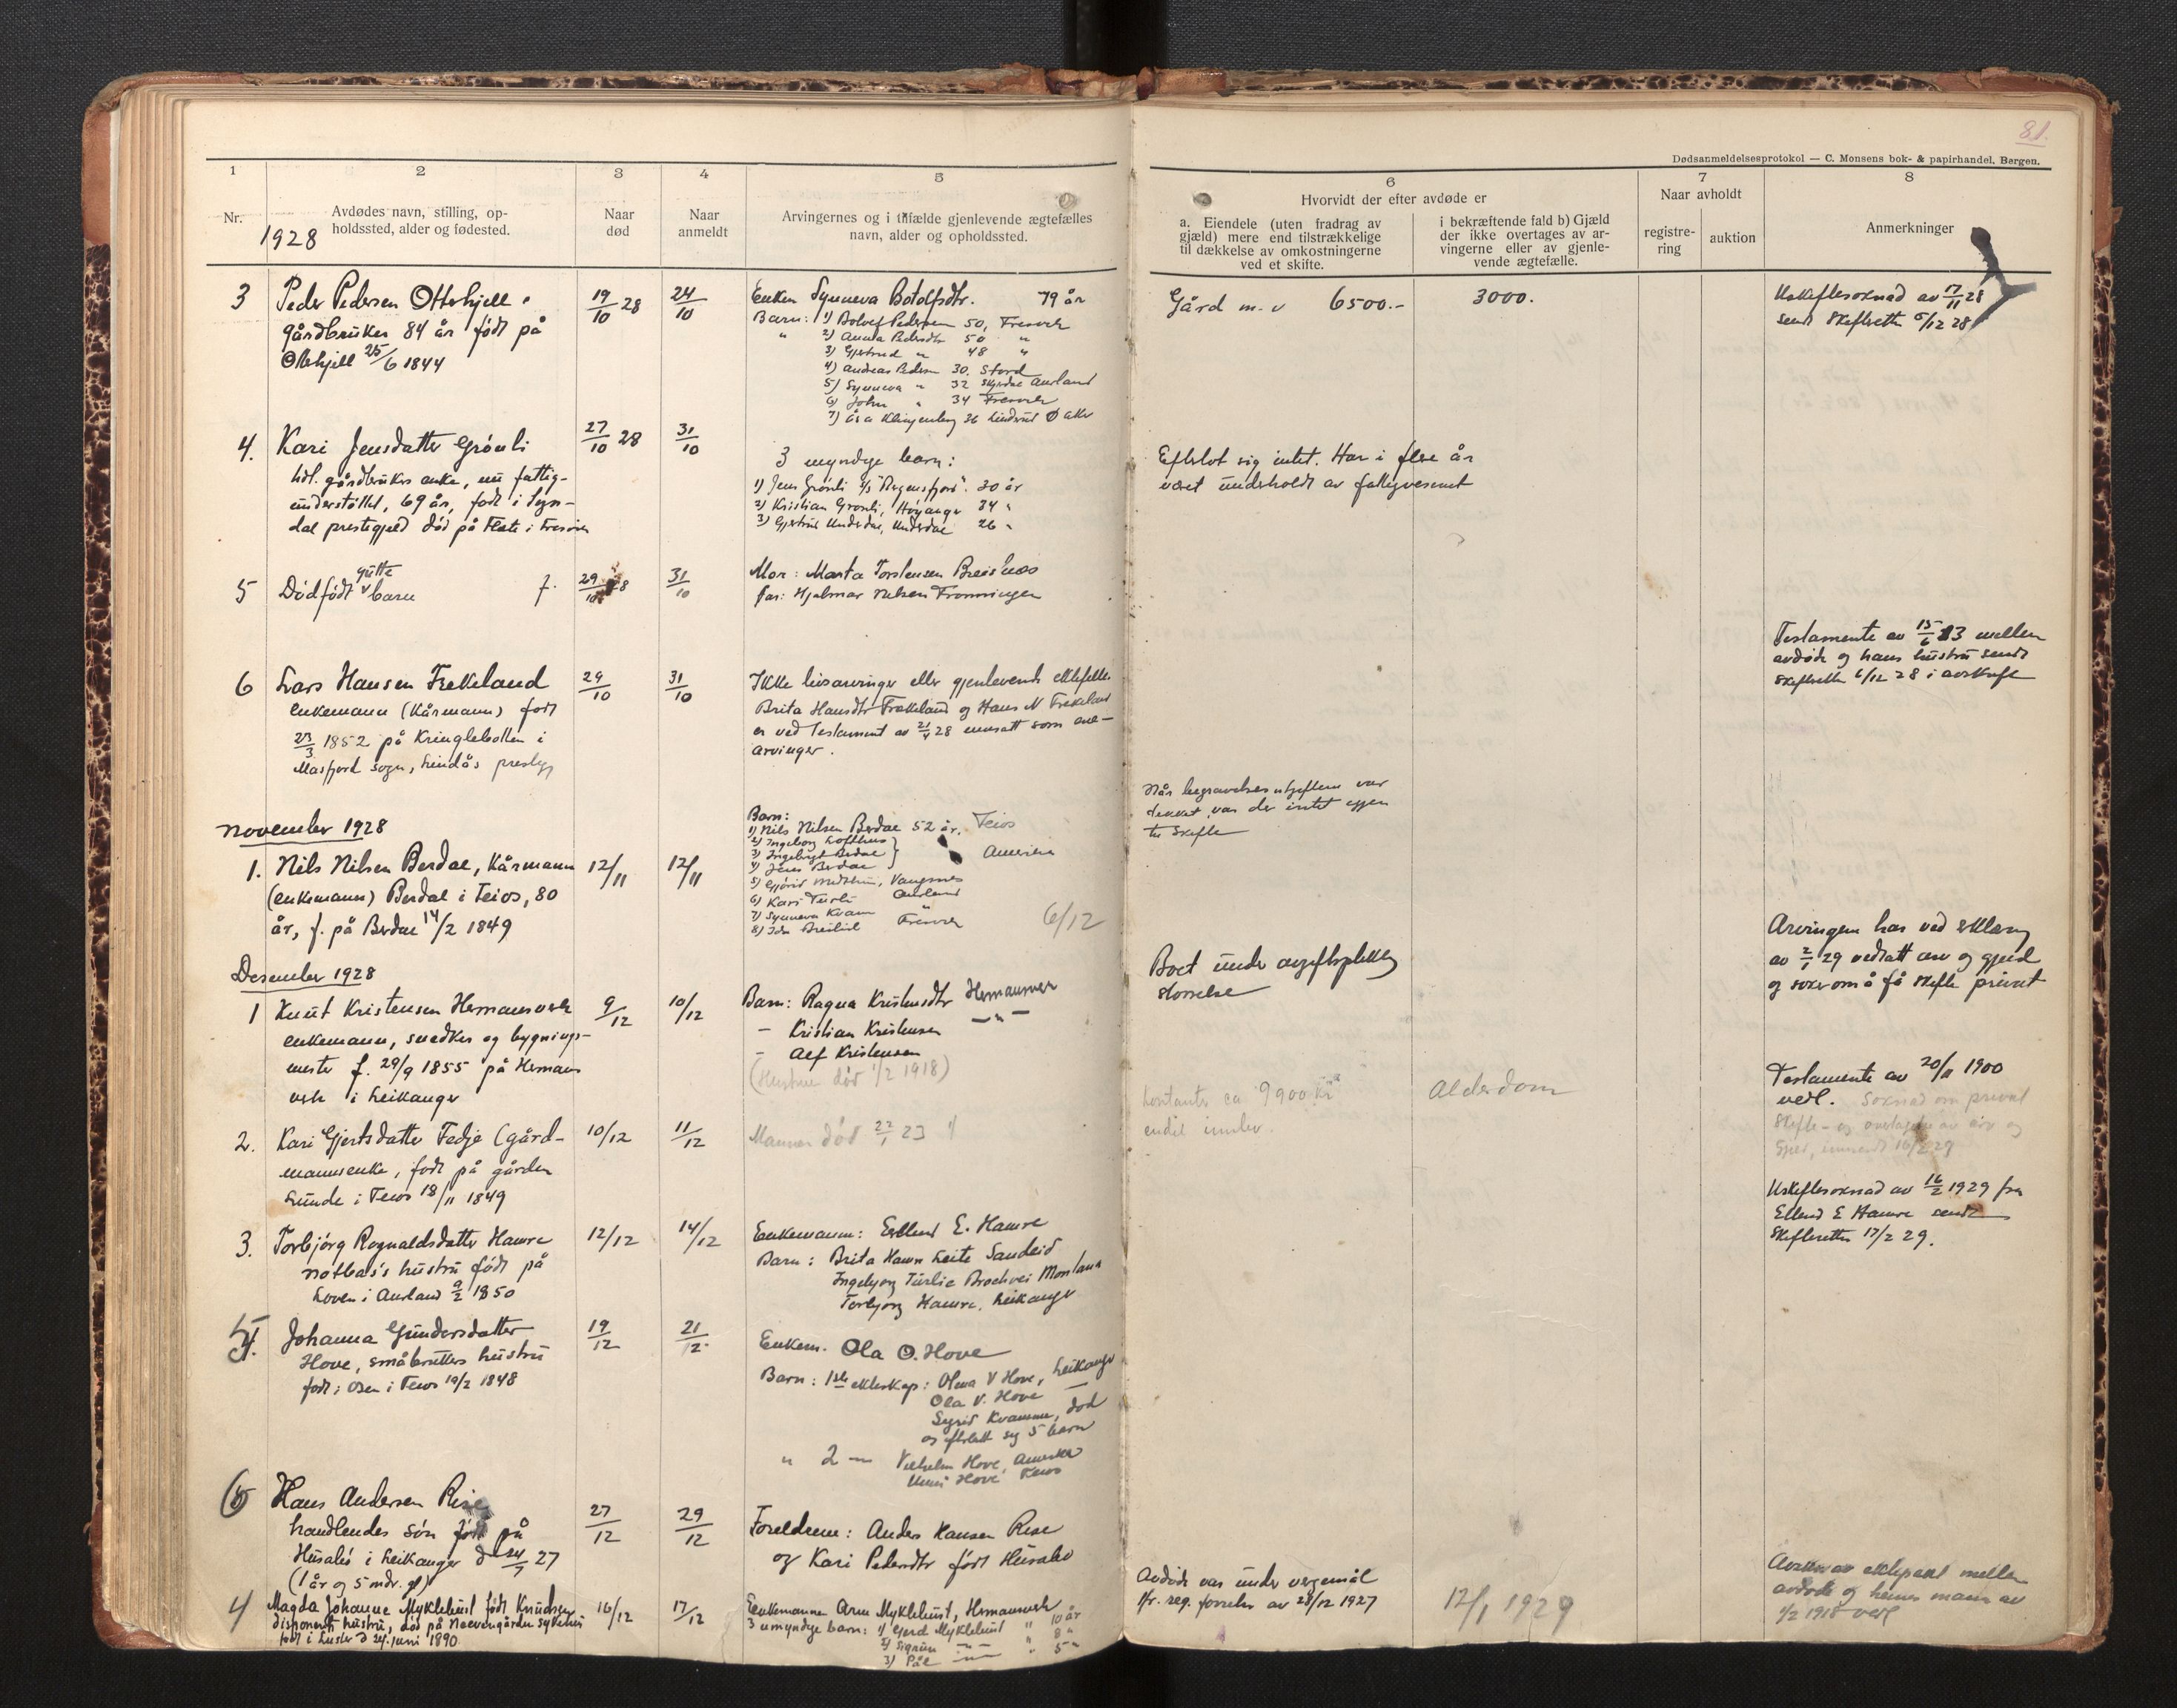 81.
Dødsanmeldelsesprotokol — C. Monsens bok- & papirhandel. Bergen.
1 2 3 4 5 6 7 8
Nr.
Avdødes navn, stilling, op-
holdssted, alder og fødested.
Naar
død
Naar
anmeldt
Arvingernes og i tilfælde gjenlevende ægtefælles
navn, alder og opholdssted.
Hvorvidt der efter avdøde er
a. Eiendele (uten fradrag av
gjæld) mere end tilstrækkelige
til dækkelse av omkostningerne
ved et skifte.
i bekræftende fald b) Gjæld
der ikke overtages av ar-
vingerne eller av gjenle-
vende ægtefælle.
Naar avholdt
registre-
ring
auktion
Anmerkninger
1928
3 Peder Pedersen Otterhjell
gårdbruker 84 år født på
Otterhjell 25/6 1844
19/10 28
24/10
Enken Synneva Botolfsdtr. 79 år
Barn: 1) Botolf Pedersen 50, Fresvik
" 2) Anna Pedersdtr 50 "
3) Gjertrud " 48 "
4) Andreas Pedersen 30. Stord
5) Synneva " 32 Skjerdal Aurland
6) John " 34 Fresvik
7) Klingenberg 36
Gård m. v 6500.- 3000.
Uskiftesøknad av 17/11 28
sendt skifteretten 5/12 28
4. Kari Jensdatter Grønli
hdl. gårdbrukers enke, nu fattig-
understøttet, 69 år, født i Sogn-
dal prestegjeld død på Flete i Fresvik
27/10 28
31/10
3 myndige barn:
1) Jens Grønli S/S "Bergensfjord". 30 år
2) Kristian Grønli, Høyanger 34 "
3) Gjertrud Underdal, Underdal 26 "
Efterlot sig intet. Har i flere år
været underholdt av fattigvesenet
5 Dødfødt gutte barn f.
29/10 28
31/10
Mor: Marta Torstensen Breisnes
far: Hjalmar Nelsen Frønningen
6 Lars Hansen Frekeland
enkemann (Kårmann) født
23/3 1852 på Kringlebotten i
Masfjord sogn, Lindås prestegj
29/10
31/10
Ikke livsarvinger eller gjenlevende ektefelle
Brita Hansdtr Frekeland og Hans N Frekeland
er ved testament av 21/4 28 innsatt som ene-
arvinger.
Når begravelsesutgiftene var
dekket, var der intet igjen
til skifte
Testamente av 15/6 83 mellem
avdøde og hans hustru sendt
skifteretten 6/12 28 i avskrift
November 1928
1. Nils Nilsen Berdal, Kårmann
(enkemann) Berdal i Feios, 80
år, f. på Berdal 14/2 1849
12/11
12/11
Barn:
1) Nils Nilsen Berdal 52 år. Feios
2) Ingeborg Lofthus
3) Ingebrigt Berdal
4) Jens Berdal
Amerika
5) Gjørid Midthun, Vangsnes
6) Kari Turli Aurland
7) Synneva Kvam "
8) Ida Fresvik
6/12
Desember 1928
1 Knut Kristensen Hermansverk
enkemann, snedker og bygnings-
mester f. 29/9 1855 på Hermans
verk i Leikanger
9/12
10/12
Barn: Ragna Kristensdtr Hermansverk
- Kristian Kristensen — " —
- Alf Kristensen
(Hustru død 1/2 1918)
Boet under avgiftspliktig
størrelse
Arvingene har ved erklæring
av 2/1 29 vedtatt arv og gjeld
og søker om å få skifte privat
2. Kari Gjertsdatter Fedje (gård-
mannsenke, født på gården
Lunde i Feios 18/11 1849
10/12
11/12
Mannen død 22/1 23
Kontanter ca 9900 kr
endel innbo.
Alderdom
Testamente av 20/11 1900
vedl. Søknad om privat
skifte - og overtagelse av arv og
gjeld, innsendt 16/2 29
3. Torbjørg Rognaldsdatter Hamre
notbas's hustru født på
Loven i Aurland 9/2 1850
12/12
14/12
Enkemann: Erllend E. Hamre
Barn: Brita Hamre Leite Sandeid
Ingebjørg Turlie Montana
Torbjørg Hamre, Leikanger
Uskiftesøknad av 16/2 1929 fra
Ellend E Hamre sendt
skifteretten 17/2 29.
5. Johanna Gundersdatter
Hove, småbrukers hustru
født i Øsen i Feios 19/2 1848
19/12
21/12
Enkem. Ola O. Hove
Barn: 1ste ekteskap: Olina V Hove, Leikanger
Ola V. Hove —
Sygrid Kvamme, død
og efterlatt sig 5 barn
" 2 — Vilhelm Hove, Amerika
Unni Hove Feios
6 Hans Andersen Rise
handlendes søn født på
Husabø i Leikanger d 24/7 27
(1 år og 5 mdr. gl)
27/12
29/12
Foreldrene: Anders Hansen Rise
og Kari Pedersdtr født Husabø
4 Magda Johanne Myklebust født Knudsen
disponents hustru, død på Neevengården sykehus
født i Luster d 24. juni 1890
16/12
17/12
Enkemannen Arne Myklebust, Hermansverk
3 umyndige barn: 1) Gjerd Myklebust " 10 år
2) Sigrun — " — " 8 "
3) Pål — " — " 5 "
Avdøde var under vergemål
ifr. reg. av 28/12 1927
12/1 1929
Avskr. av ektepakt mellem
avdøde og hennes mann av
1/2 1918 vedl